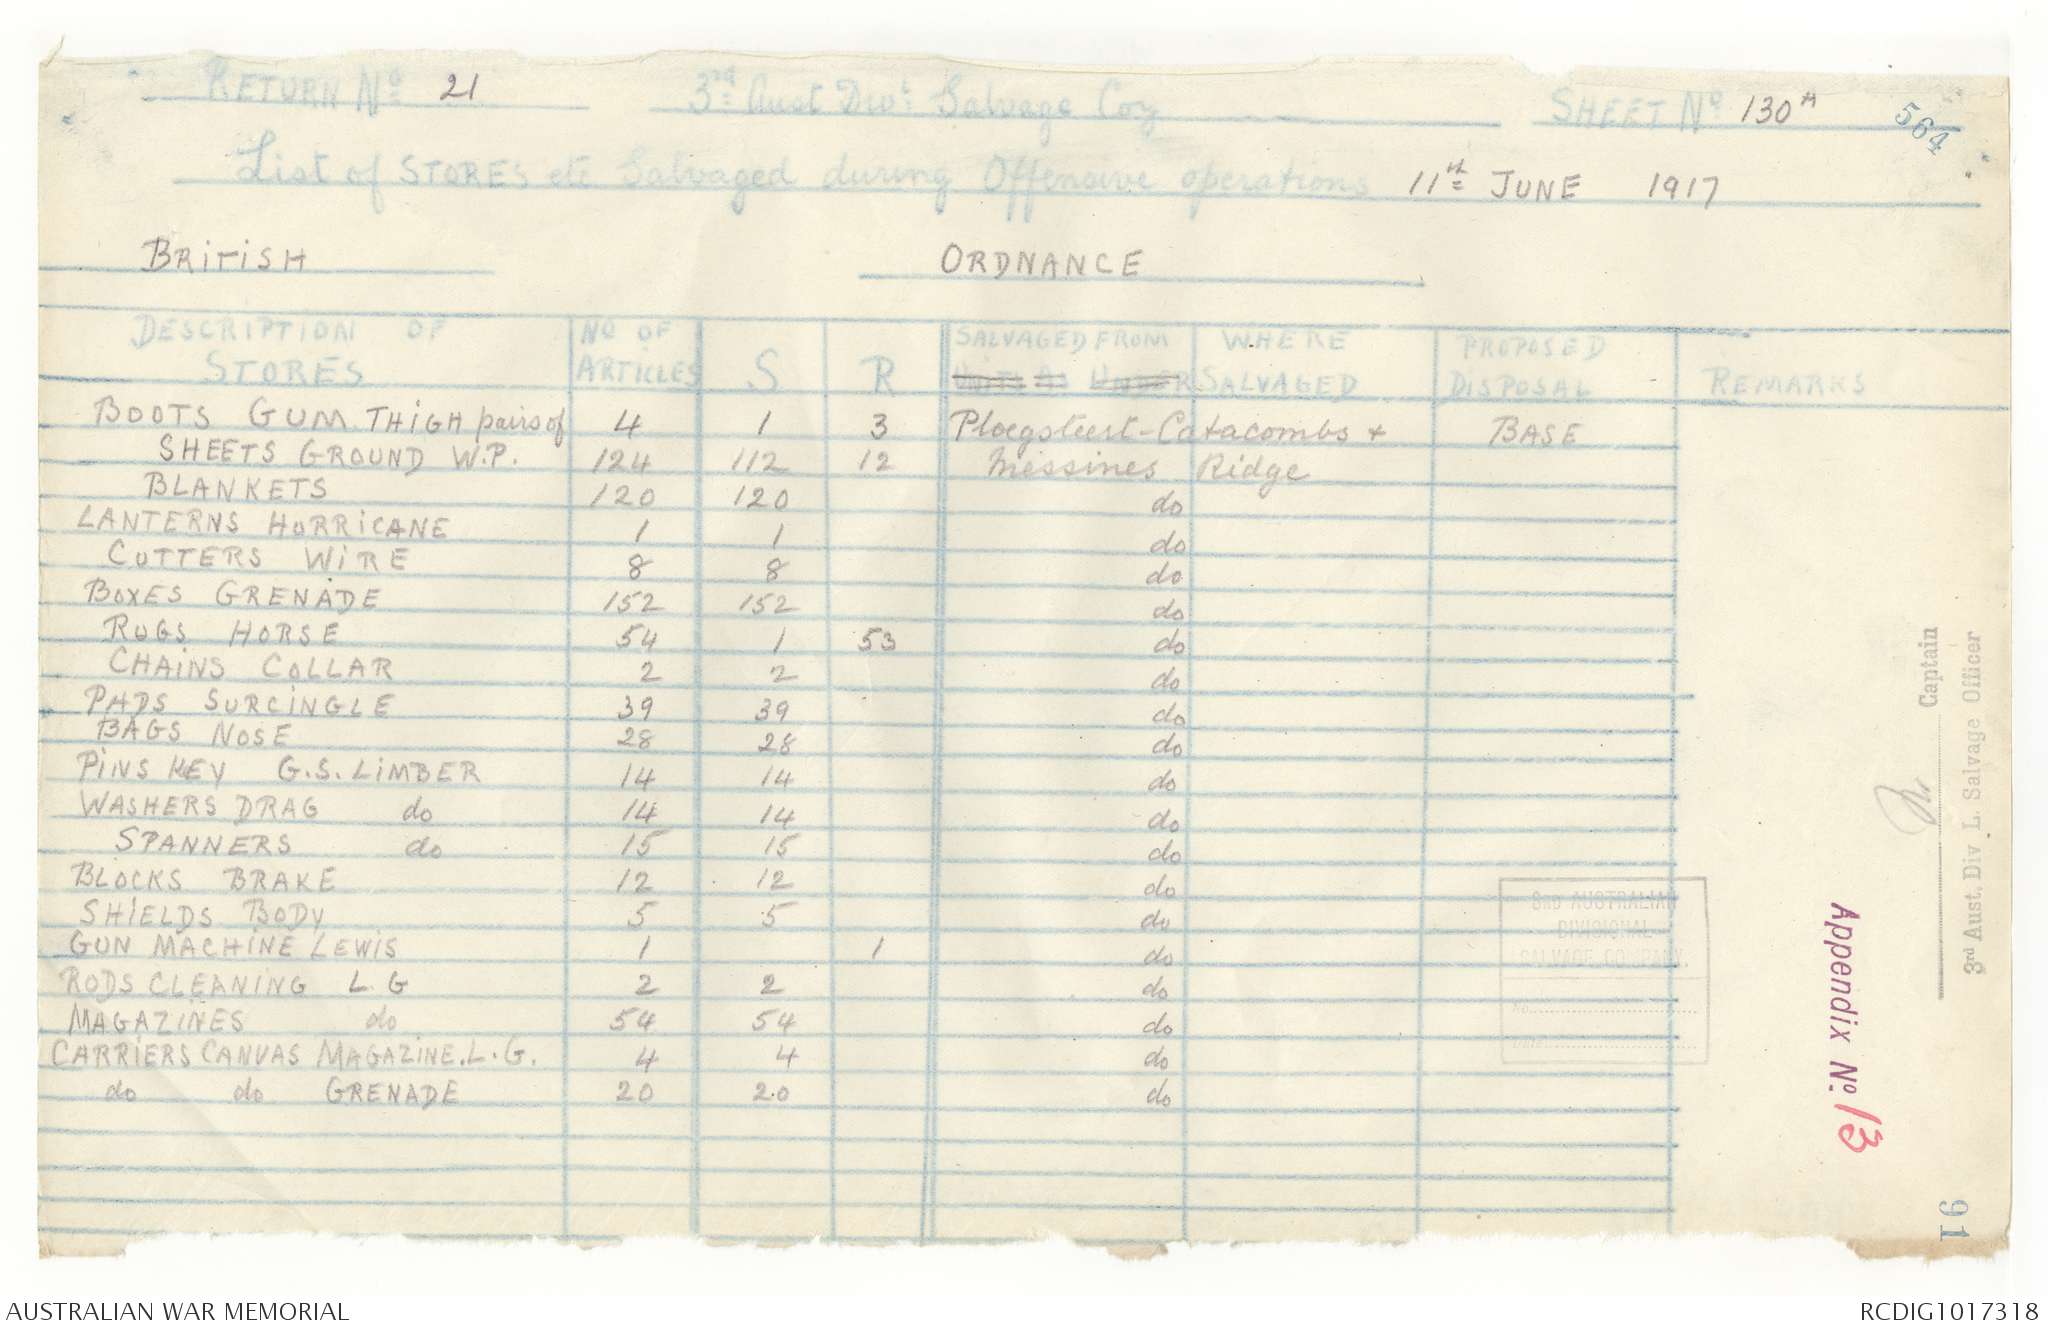 RETURN No 21 3rd Aust Divl Salvage Coy SHEET No 130A 564
List of STORES etc Salvaged during Offensive operations 11th JUNE 1917
BRITISH ORDNANCE
DESCRIPTION OF STORES No OF ARTICLES S R SALVAGED FROM UNITS AS UNDER WHERE SALVAGED PROPOSED DISPOSAL REMARKS
BOOTS GUM THIGH pairs of 4 1 3 Ploegsteert-Catacombs + BASE
SHEETS GROUND W.P. 124 112 12 Messines Ridge
BLANKETS 120 120 do
LANTERNS HURRICANE 1 1 do
CUTTERS WIRE 8 8 do
BOXES GRENADE 152 152 do
RUGS HORSE 54 1 53 do
CHAINS COLLAR 2 2 do
PADS SURCINGLE 39 39 do
BAGS NOSE 28 28 do
PINS KEY G.S. LIMBER 14 14 do
WASHERS DRAG do 14 14 do
SPANNERS do 15 15 do
BLOCKS BRAKE 12 12 do
SHIELDS BODY 5 5 do
GUN MACHINE LEWIS 1 1 do
RODS CLEANING L.G 2 2 do
MAGAZINES do 54 54 do
CARRIERS CANVAS MAGAZINE.L.G. 4 4 do
do do GRENADE 20 20 do
3RD AUSTRALIAN
DIVISIONAL
SALVAGE COMPANY.
No.
Date
Captain
3rd Aust. Div. L. Salvage Officer
Appendix No. 13
91
AUSTRALIAN WAR MEMORIAL RCDIG1017318